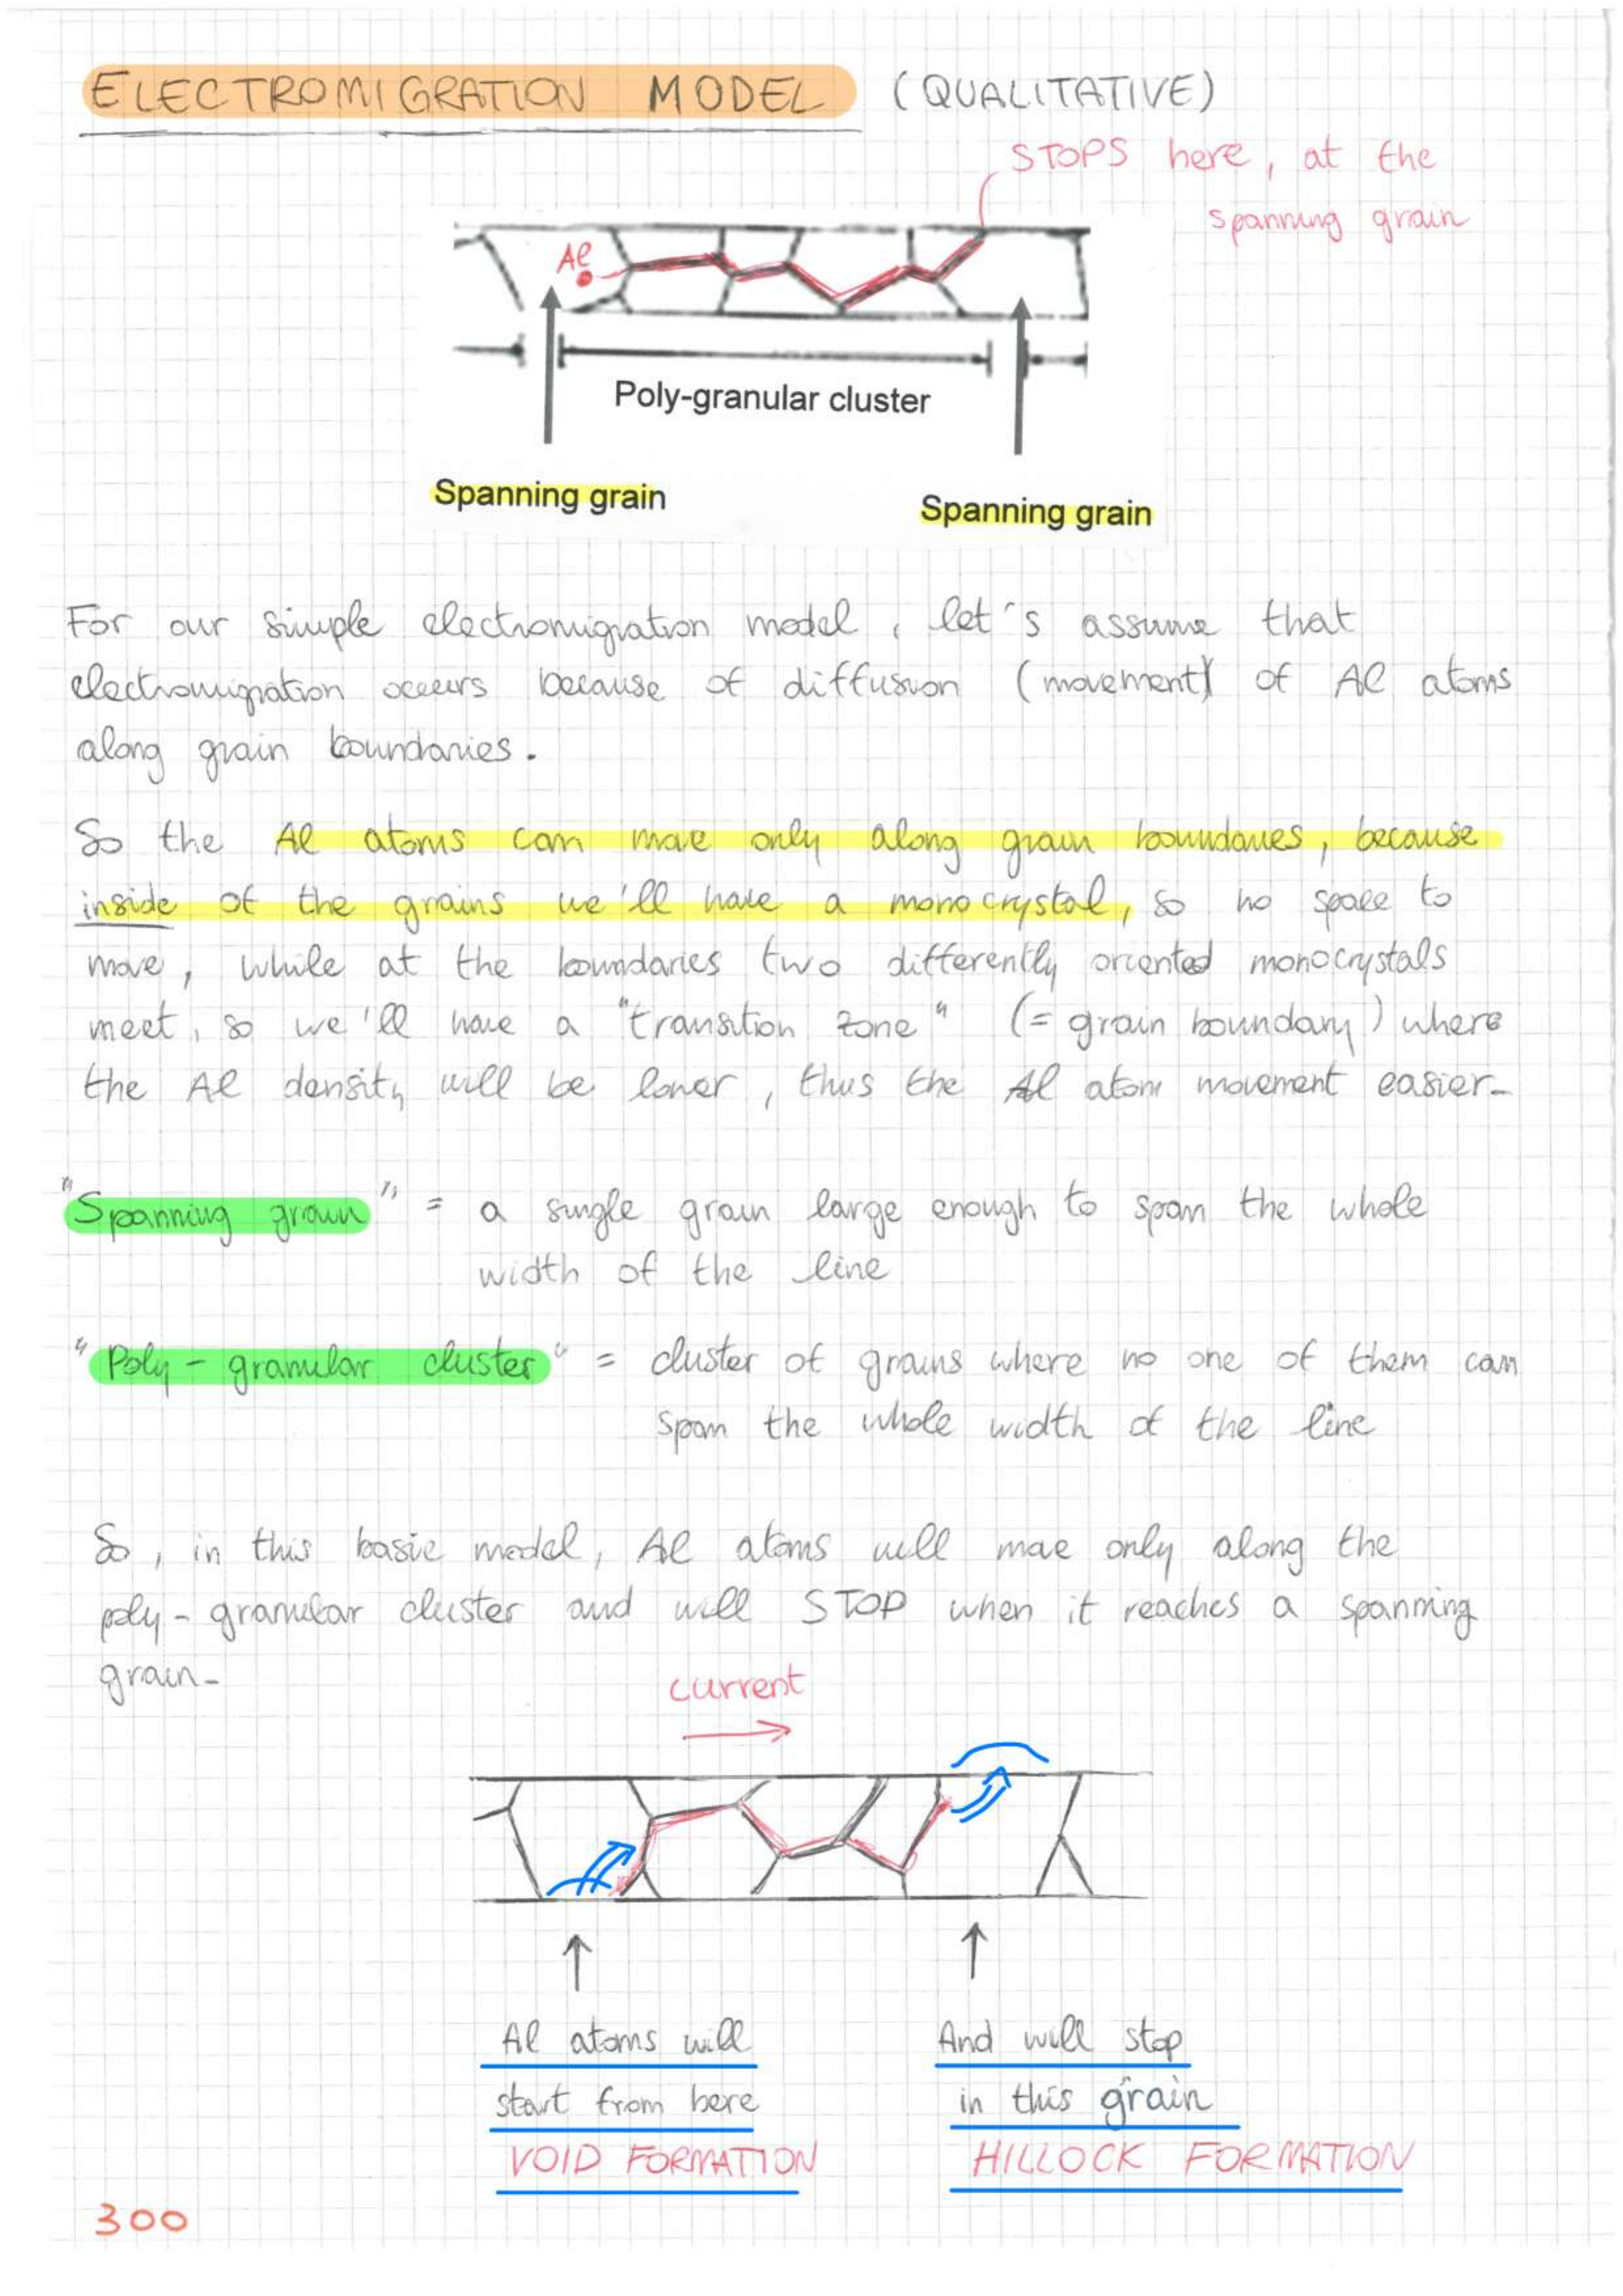 ELECTROMIGRATION MODEL (QUALITATIVE)
STOPS here, at the
spanning grain
Al
Poly-granular cluster
Spanning grain
Spanning grain
For our simple electromigration model, let's assume that
electromigration occurs because of diffusion (movement) of Al atoms
along grain boundaries.
So the Al atoms can move only along grain boundaries, because
inside of the grains we'll have a monocrystal, so no space to
move, while at the boundaries two differently oriented monocrystals
meet, so we'll have a "transition zone" (= grain boundary) where
the Al density will be lower, thus the Al atom movement easier.
"Spanning grain" = a single grain large enough to span the whole
width of the line
"Poly-granular cluster" = cluster of grains where no one of them can
span the whole width of the line
So, in this basic model, Al atoms will move only along the
poly-granular cluster and will STOP when it reaches a spanning
grain.
current
Al atoms will
start from here
VOID FORMATION
And will stop
in this grain
HILLOCK FORMATION
300